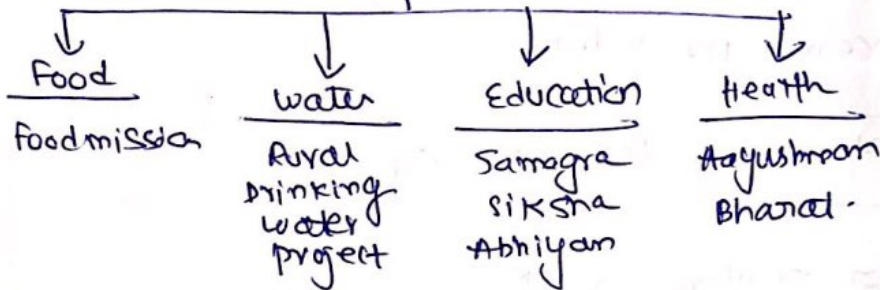 Food
Foodmission
Water
Rural
Drinking
water
project
Education
Samagra
Siksha
Abhiyan
Health
Aayushman
Bharat.